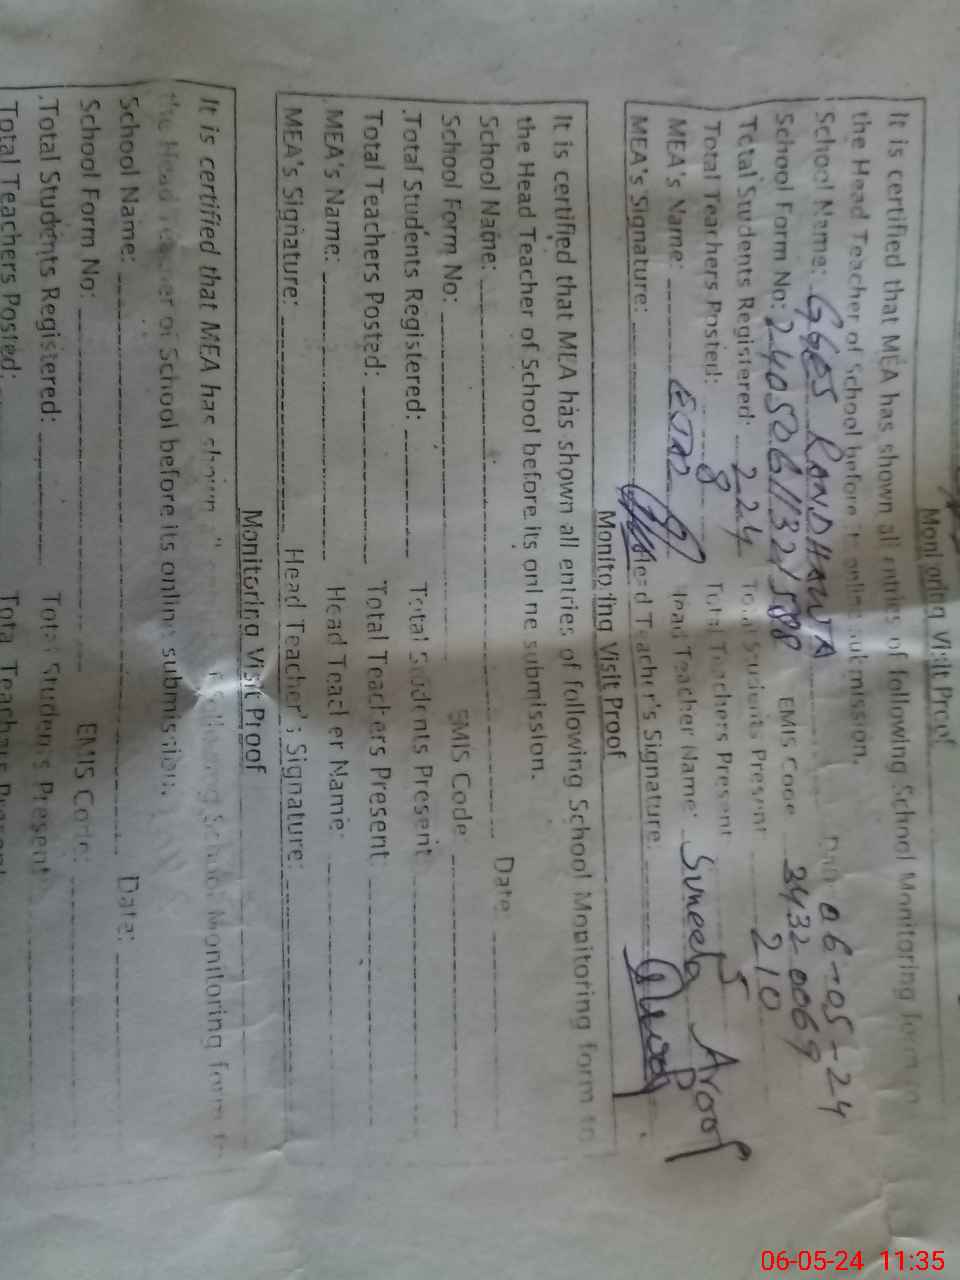 Monitoring Visit Proof
It is certified that MEA has shown all entries of following School Monitoring form to
the Head Teacher of School before its online submission.
School Name: GGES RANDHAWA Date 06-05-24
School Form No: EMIS Code 34320069
Total Students Registered: 224 Total Students Present 210
Total Teachers Posted: 8 Total Teachers Present 5
MEA's Name: EJAZ Head Teacher Name: Suneela Aroof
MEA's Signature: Head Teacher's Signature:
Monitoring Visit Proof
It is certified that MEA has shown all entries of following School Monitoring form to
the Head Teacher of School before its online submission.
School Name: Date
School Form No: EMIS Code
.Total Students Registered: Total Students Present
Total Teachers Posted: Total Teachers Present
MEA's Name: Head Teacher Name:
MEA's Signature: Head Teacher's Signature:
Monitoring Visit Proof
It is certified that MEA has shown of following School Monitoring form
the Head Teacher of School before its online submission.
School Name: Date:
School Form No: EMIS Code:
.Total Students Registered: Total Students Present
Total Teachers Posted: Total Teachers Present
06-05-24 11:35